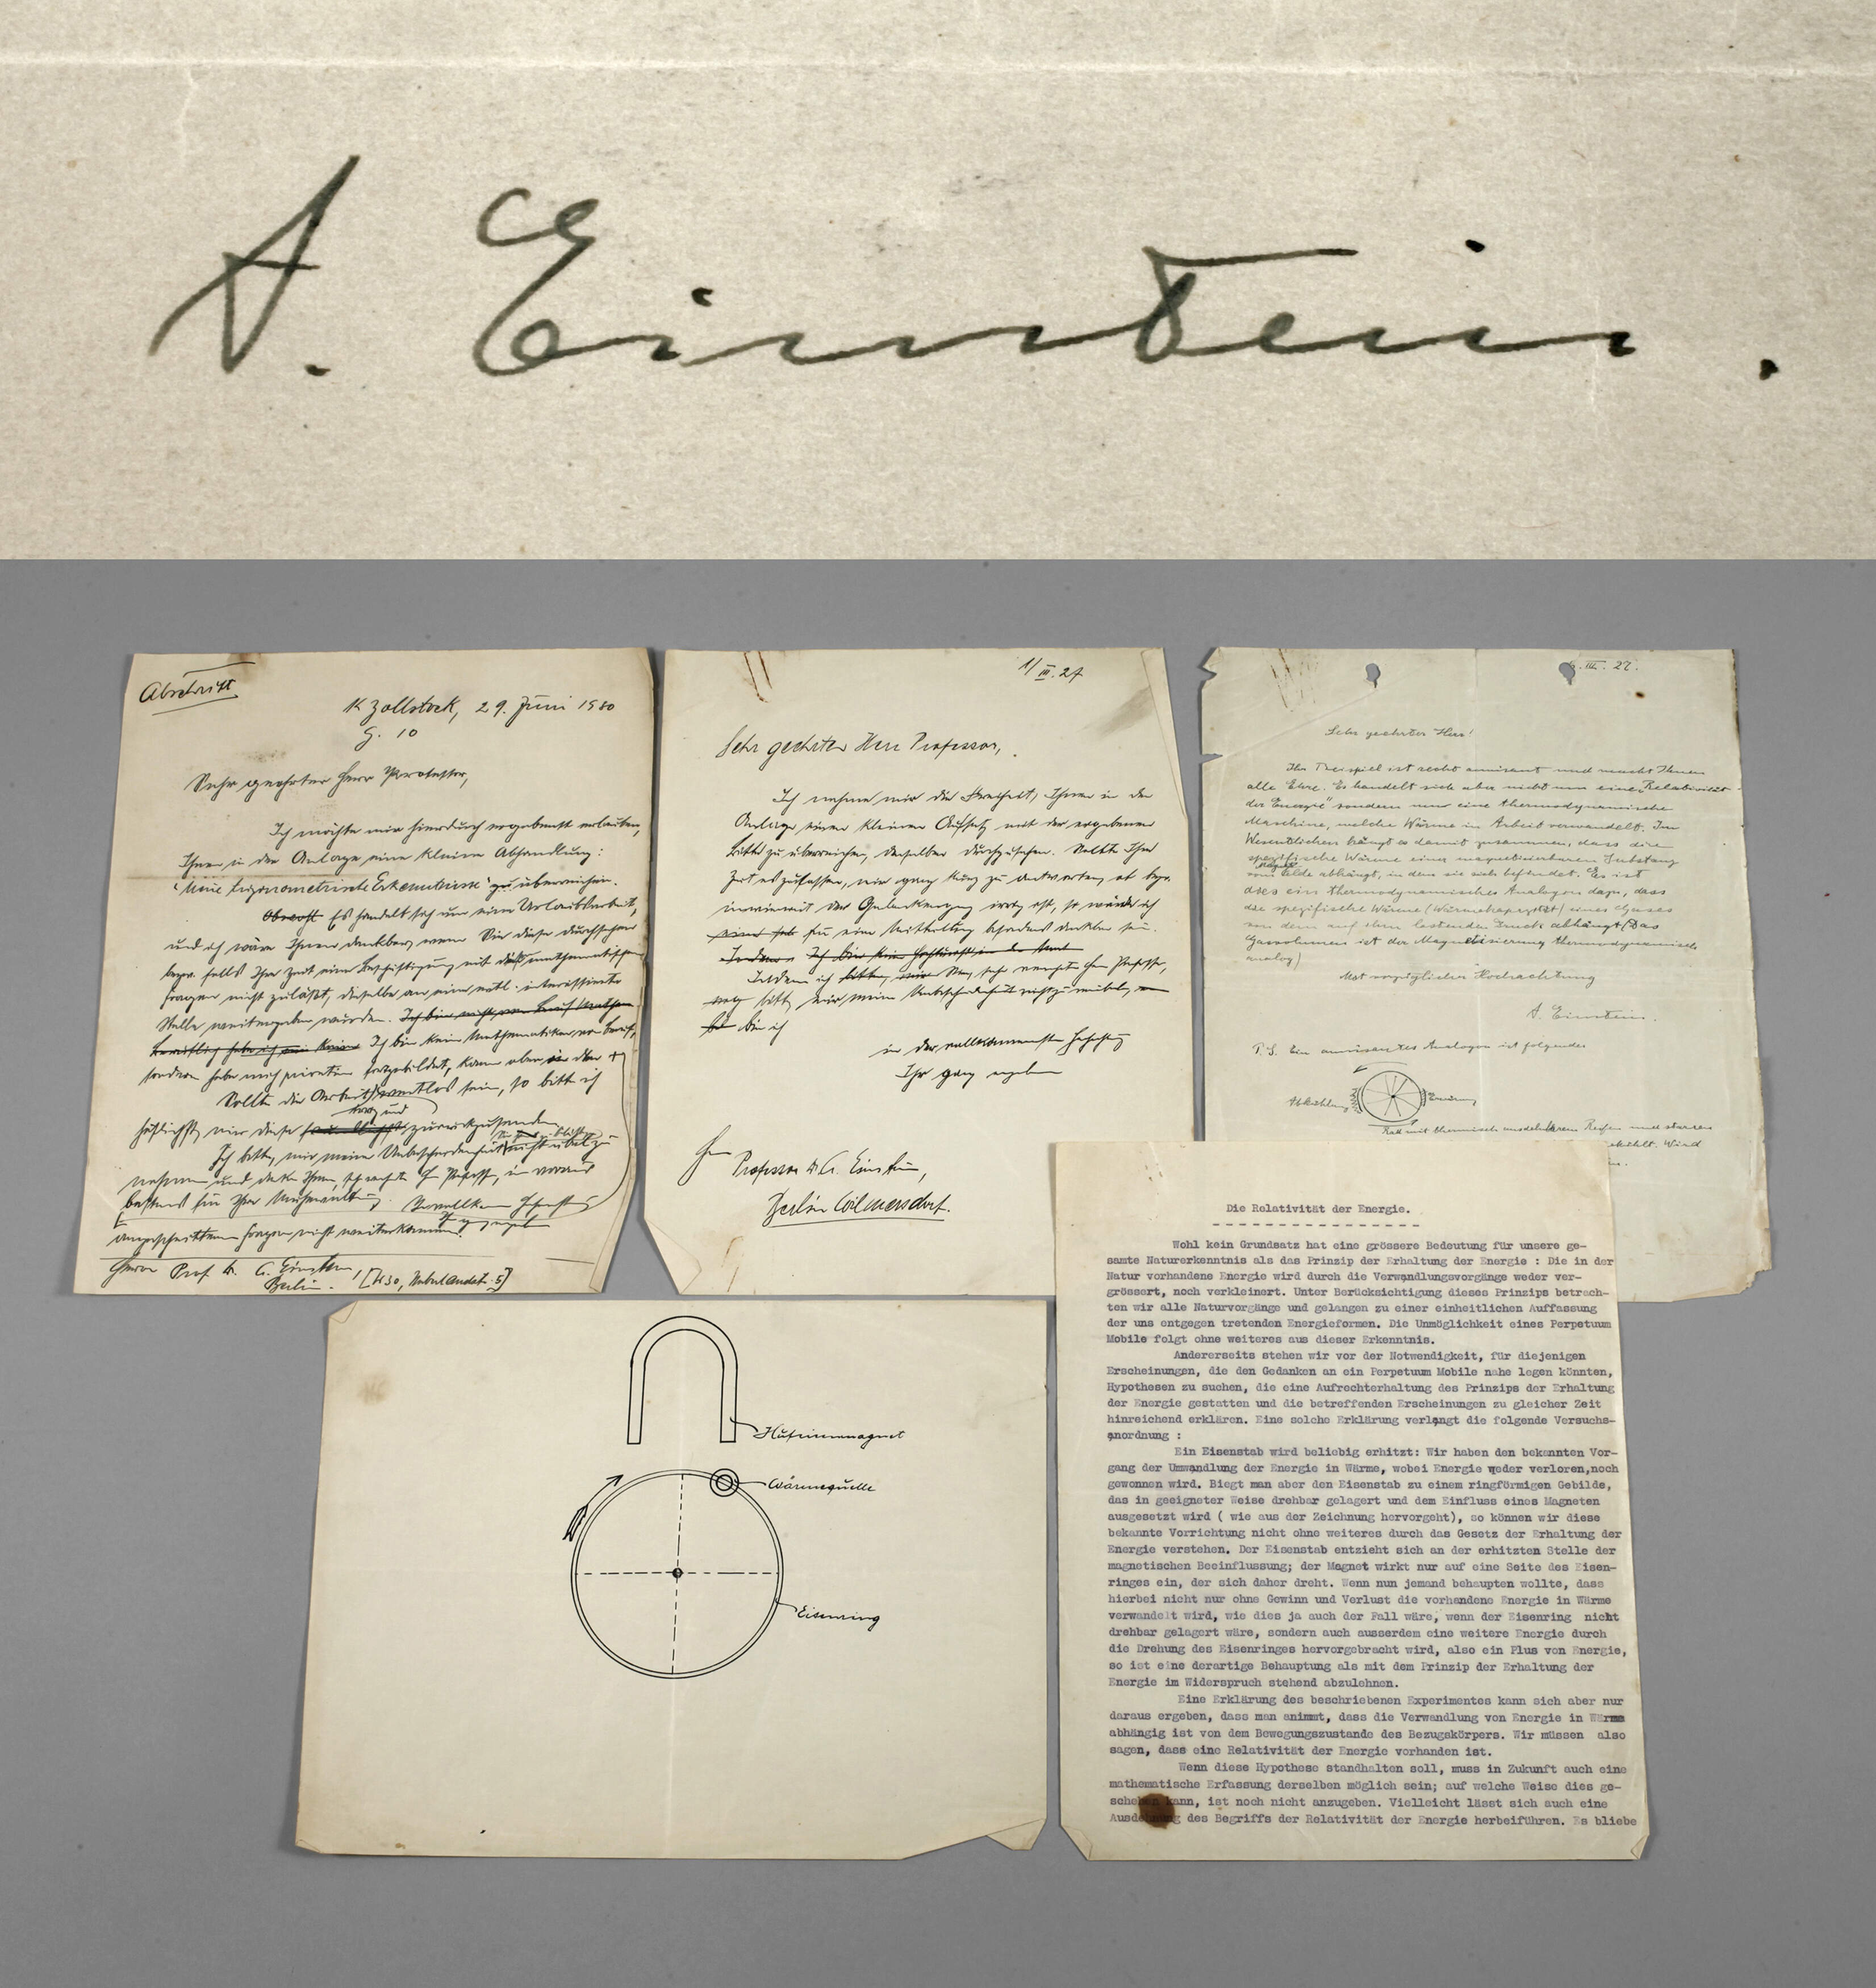 A. Einstein.
Abschrift
K Zollstock, 29. Juni 1930
G. 10
Sehr geehrter Herr Professor,
Ich möchte mir hierdurch ergebenst erlauben,
Ihnen in der Anlage eine kleine Abhandlung:
"Neue trigonometrische Erkenntnisse" zu überreichen.
Es handelt sich um eine Urlaubsarbeit,
und ich wäre Ihnen dankbar, wenn Sie diese durchsehen
bzw. falls Ihre Zeit eine Beschäftigung mit mathematischen
Fragen nicht zuläßt, dieselbe an eine evtl. interessierte
Stelle weitergeben würden.
Ich bin kein Mathematiker von Beruf,
sondern habe mich privatim fortgebildet, kann aber
Sollte die Arbeit wertlos sein, so bitte ich
höflichst mir diese zurückzusenden.
Ich bitte, mir meine Unbescheidenheit nicht übel zu
nehmen und danke Ihnen, sehr geehrter Herr Professor, im voraus
bestens für Ihre Mühewaltung.
angeschnittenen Fragen nicht weiterkommen.
Herrn Prof. Dr. A. Einstein,
Berlin.
1/III.27
Sehr geehrter Herr Professor,
Ich nehme mir die Freiheit, Ihnen in der
Anlage einen kleinen Aufsatz mit der ergebenen
Bitte zu überreichen, denselben durchzusehen. Sollte Ihre
Zeit es zulassen, mir ganz kurz zu antworten, ob bzw.
inwieweit der Gedankengang irrig ist, so würde ich
für eine Mitteilung besonders dankbar sein.
Indem ich Sie, sehr geehrter Herr Professor,
bitte, mir meine Unbescheidenheit nicht zu verübeln,
bin ich
in der vollkommensten Hochachtung
Ihr ganz ergebener
Herrn
Professor Dr. A. Einstein,
Berlin Wilmersdorf.
III. 27.
Sehr geehrter Herr!
Ihr Beispiel ist recht amüsant und macht Ihnen
alle Ehre. Es handelt sich aber nicht um eine "Relativität
der Energie" sondern um eine thermodynamische
Maschine, welche Wärme in Arbeit verwandelt. Im
Wesentlichen hängt es damit zusammen, dass die
spezifische Wärme einer magnetisierbaren Substanz
vom Magnetfelde abhängt, in dem sie sich befindet. Es ist
dies ein thermodynamisches Analogon dazu, dass
die spezifische Wärme (Wärmekapazität) eines Gases
von dem auf ihm lastenden Druck abhängt (Das
Gasvolumen ist der Magnetisierung thermodynamisch
analog)
Mit vorzüglicher Hochachtung
A. Einstein.
P. S. Ein amüsantes Analogon ist folgendes
Abkühlung
Erwärmung
Rad mit thermisch ausdehnbarem Reifen und starren
gekühlt. Wird
Hufeisenmagnet
Wärmequelle
Eisenring
Die Relativität der Energie.
Wohl kein Grundsatz hat eine grössere Bedeutung für unsere ge-
samte Naturerkenntnis als das Prinzip der Erhaltung der Energie : Die in der
Natur vorhandene Energie wird durch die Verwandlungsvorgänge weder ver-
grössert, noch verkleinert. Unter Berücksichtigung dieses Prinzips betrach-
ten wir alle Naturvorgänge und gelangen zu einer einheitlichen Auffassung
der uns entgegen tretenden Energieformen. Die Unmöglichkeit eines Perpetuum
Mobile folgt ohne weiteres aus dieser Erkenntnis.
Andererseits stehen wir vor der Notwendigkeit, für diejenigen
Erscheinungen, die den Gedanken an ein Perpetuum Mobile nahe legen könnten,
Hypothesen zu suchen, die eine Aufrechterhaltung des Prinzips der Erhaltung
der Energie gestatten und die betreffenden Erscheinungen zu gleicher Zeit
hinreichend erklären. Eine solche Erklärung verlangt die folgende Versuchs-
anordnung :
Ein Eisenstab wird beliebig erhitzt: Wir haben den bekannten Vor-
gang der Umwandlung der Energie in Wärme, wobei Energie weder verloren,noch
gewonnen wird. Biegt man aber den Eisenstab zu einem ringförmigen Gebilde,
das in geeigneter Weise drehbar gelagert und dem Einfluss eines Magneten
ausgesetzt wird ( wie aus der Zeichnung hervorgeht), so können wir diese
bekannte Vorrichtung nicht ohne weiteres durch das Gesetz der Erhaltung der
Energie verstehen. Der Eisenstab entzieht sich an der erhitzten Stelle der
magnetischen Beeinflussung; der Magnet wirkt nur auf eine Seite des Eisen-
ringes ein, der sich daher dreht. Wenn nun jemand behaupten wollte, dass
hierbei nicht nur ohne Gewinn und Verlust die vorhandene Energie in Wärme
verwandelt wird, wie dies ja auch der Fall wäre, wenn der Eisenring nicht
drehbar gelagert wäre, sondern auch ausserdem eine weitere Energie durch
die Drehung des Eisenringes hervorgebracht wird, also ein Plus von Energie,
so ist eine derartige Behauptung als mit dem Prinzip der Erhaltung der
Energie im Widerspruch stehend abzulehnen.
Eine Erklärung des beschriebenen Experimentes kann sich aber nur
daraus ergeben, dass man animmt, dass die Verwandlung von Energie in Wärme
abhängig ist von dem Bewegungszustande des Bezugskörpers. Wir müssen also
sagen, dass eine Relativität der Energie vorhanden ist.
Wenn diese Hypothese standhalten soll, muss in Zukunft auch eine
mathematische Erfassung derselben möglich sein; auf welche Weise dies ge-
schehen kann, ist noch nicht anzugeben. Vielleicht lässt sich auch eine
Ausdehnung des Begriffs der Relativität der Energie herbeiführen. Es bliebe